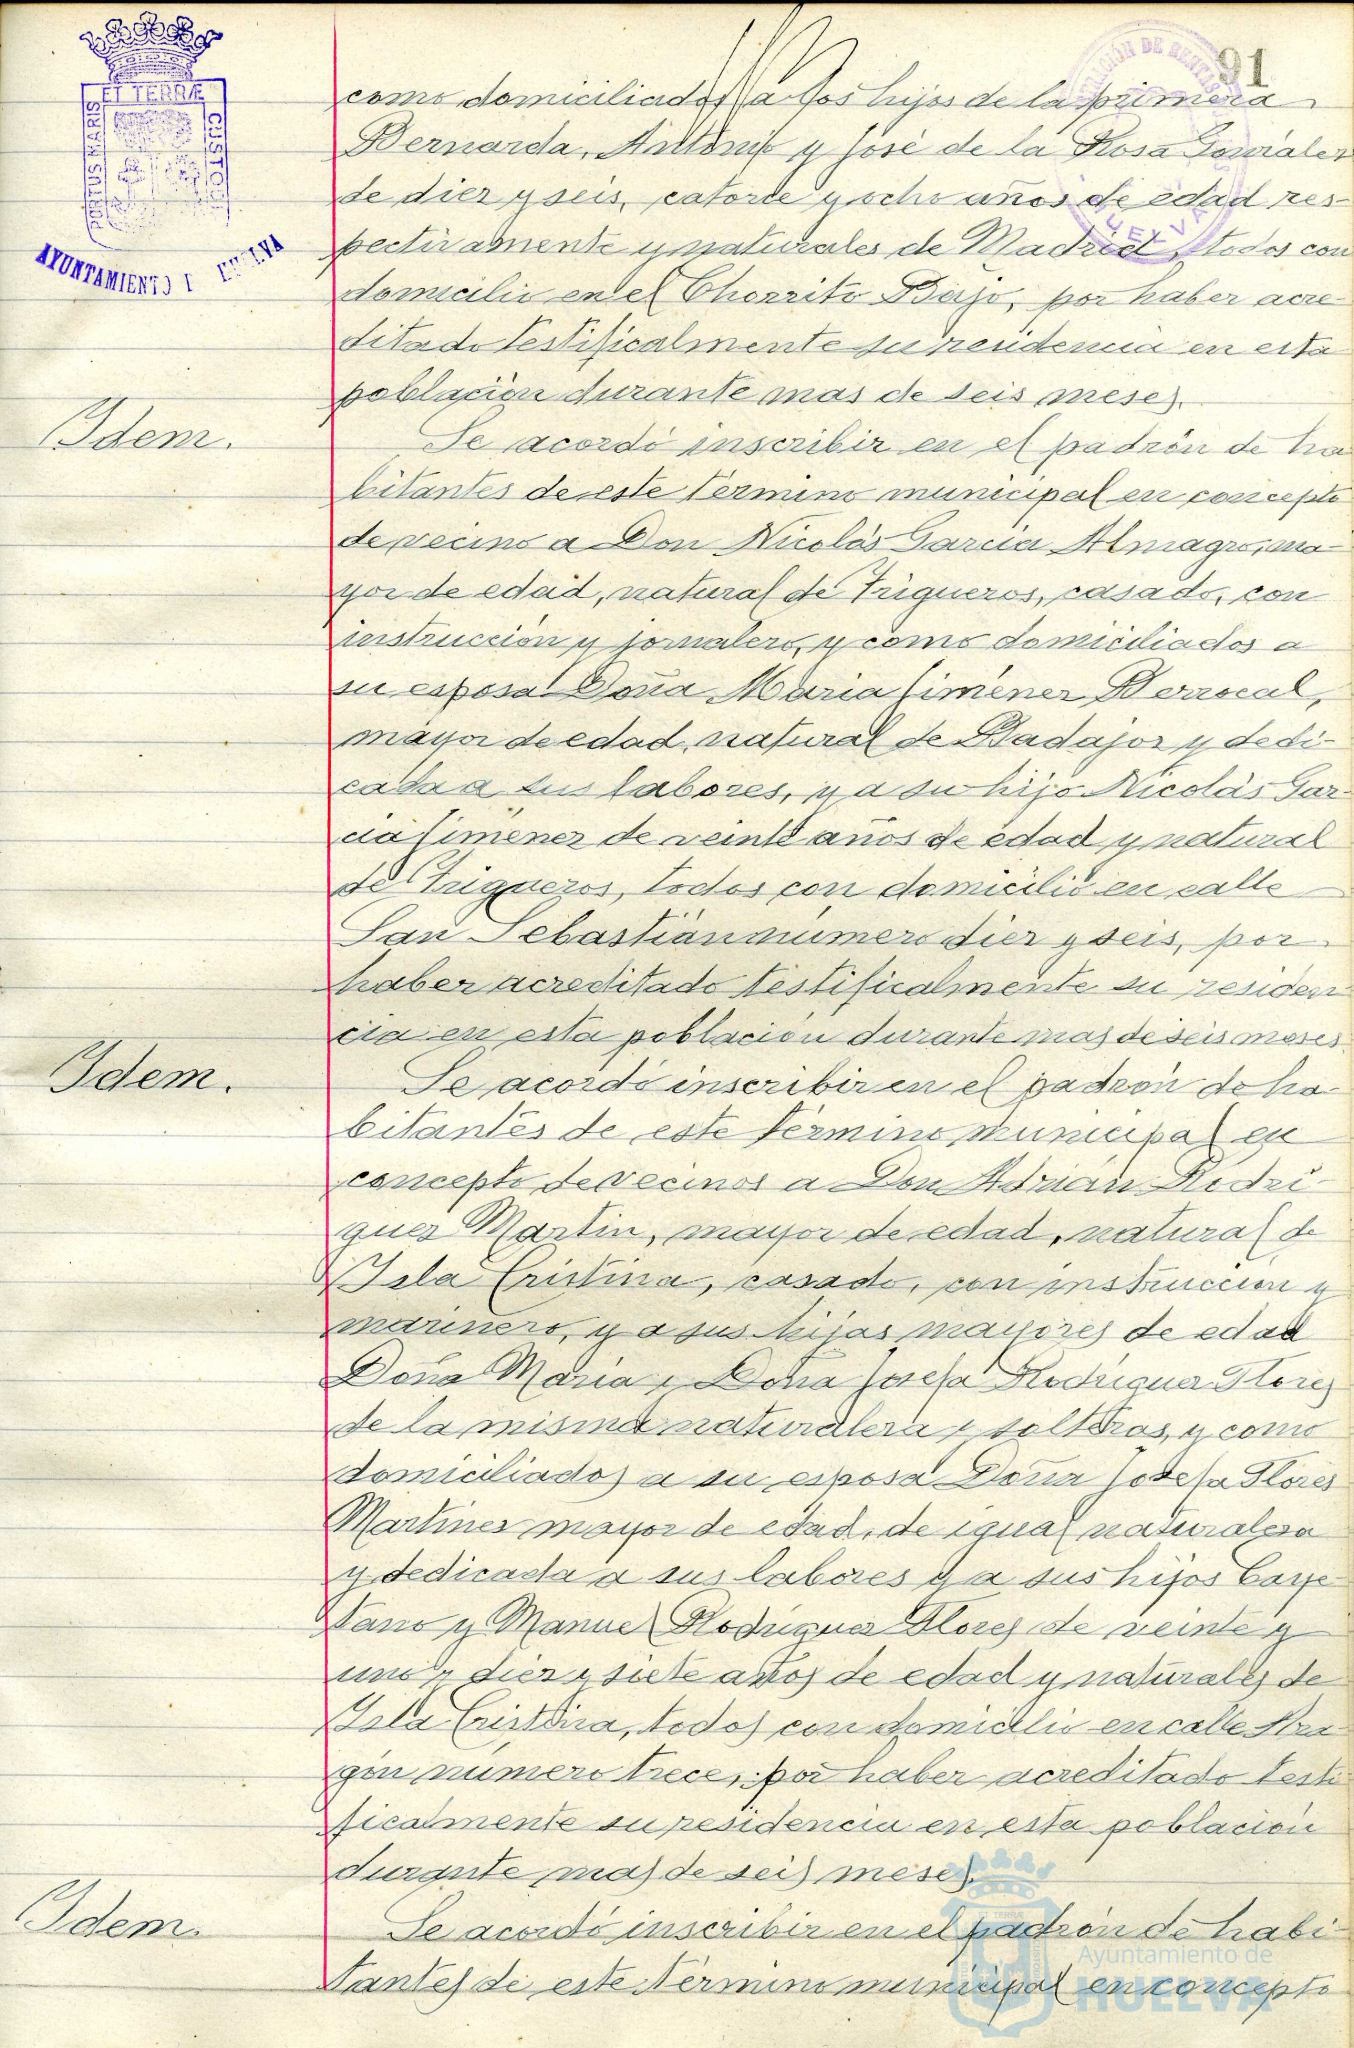 91
PORTUS MARIS ET TERRÆ CUSTO
AYUNTAMIENTO
como domiciliados a los hijos de la primera
Bernarda, Antonio y José de la Rosa Gonzáles
de diez y seis, catorce y ocho años de edad res-
pectivamente y naturales de Madrid, todos con
domicilio en el Chorrito Bajo, por haber acre-
ditado testificalmente su residencia en esta
población durante mas de seis meses.
Idem.
Se acordó inscribir en el padrón de ha
bitantes de este término municipal en concepto
de vecino a Don Nicolás Garcia Almagro, ma-
yor de edad, natural de Trigueros, casado, con
instrucción y jornalero, y como domiciliados a
su esposa Doña Maria Jiménez Berrocal,
mayor de edad, natural de Badajoz y dedi-
cada a sus labores, y a su hijo Nicolás Gar-
cia Jiménez de veinte años de edad y natural
de Trigueros, todos con domicilio en calle
San Sebastián número diez y seis, por
haber acreditado testificalmente su residen
cia en esta población durante mas de seis meses.
Idem.
Se acordó inscribir en el padrón de ha-
bitantes de este término municipal en
concepto de vecinos a Don Adrián Rodri-
guez Martin, mayor de edad, natural de
Isla Cristina, casado, con instrucción y
marinero, y a sus hijas mayores de edad
Doña Maria y Doña Josefa Rodriguez Flores
de la misma naturaleza y solteras, y como
domiciliados a su esposa Doña Josefa Flores
Martinez mayor de edad, de igual naturaleza
y dedicada a sus labores y a sus hijos Caye
tano y Manuel Rodriguez Flores de veinte y
uno y diez y siete años de edad y naturales de
Isla Cristina, todos con domicilio en calle Ara
gón número trece, por haber acreditado testi
ficalmente su residencia en esta población
durante mas de seis meses.
Idem.
Se acordó inscribir en el padrón de habi-
tantes de este término municipal en concepto
Ayuntamiento de
HUELVA